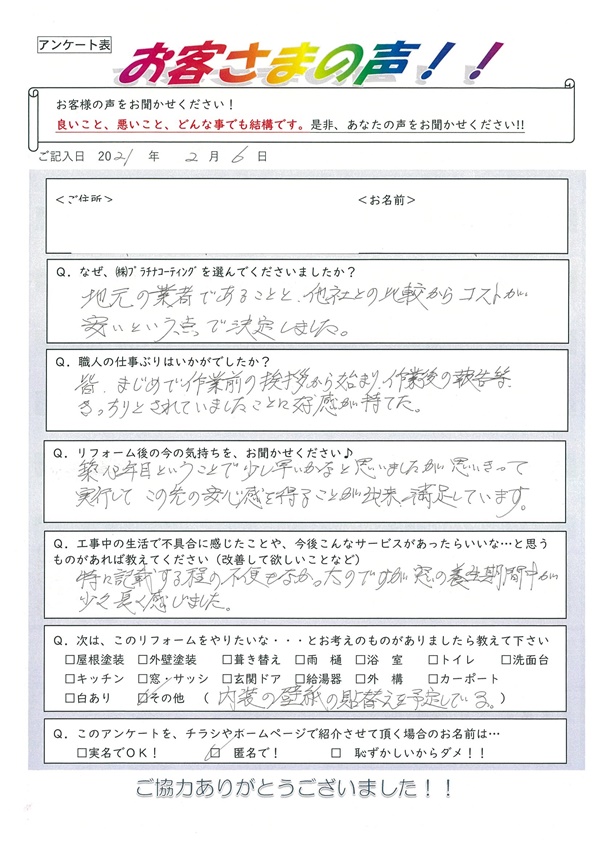 アンケート表
お客さまの声！！
お客様の声をお聞かせください！
良いこと、悪いこと、どんな事でも結構です。是非、あなたの声をお聞かせください!!
ご記入日 2021 年 2 月 6 日
＜ご住所＞ ＜お名前＞
Q．なぜ、㈱ﾌﾟﾗﾁﾅｺｰﾃｨﾝｸﾞを選んでくださいましたか？
地元の業者であることと、他社との比較からコストが
安いという点で決定しました。
Q．職人の仕事ぶりはいかがでしたか？
皆、まじめで作業前の挨拶から始まり、作業後の報告等、
きっちりとされていましたことに好感が持てた。
Q．リフォーム後の今の気持ちを、お聞かせください♪
築12年目ということで少し早いかなと思いましたが思いきって
実行して この先の安心感を得ることが出来、満足しています。
Q．工事中の生活で不具合に感じたことや、今後こんなサービスがあったらいいな…と思う
ものがあれば教えてください（改善して欲しいことなど）
特に記載する程の不便もなかったのですが窓の養生期間中が
少々長く感じました。
Q．次は、このリフォームをやりたいな・・・とお考えのものがありましたら教えて下さい
□屋根塗装 □外壁塗装 □葺き替え □雨 樋 □浴 室 □トイレ □洗面台
□キッチン □窓・サッシ □玄関ドア □給湯器 □外 構 □カーポート
□白あり ☑その他 （ 内装の壁紙の貼替えを予定している。）
Q．このアンケートを、チラシやホームページで紹介させて頂く場合のお名前は…
□実名でOK！ ☑ 匿名で！ □ 恥ずかしいからダメ！！
ご協力ありがとうございました！！